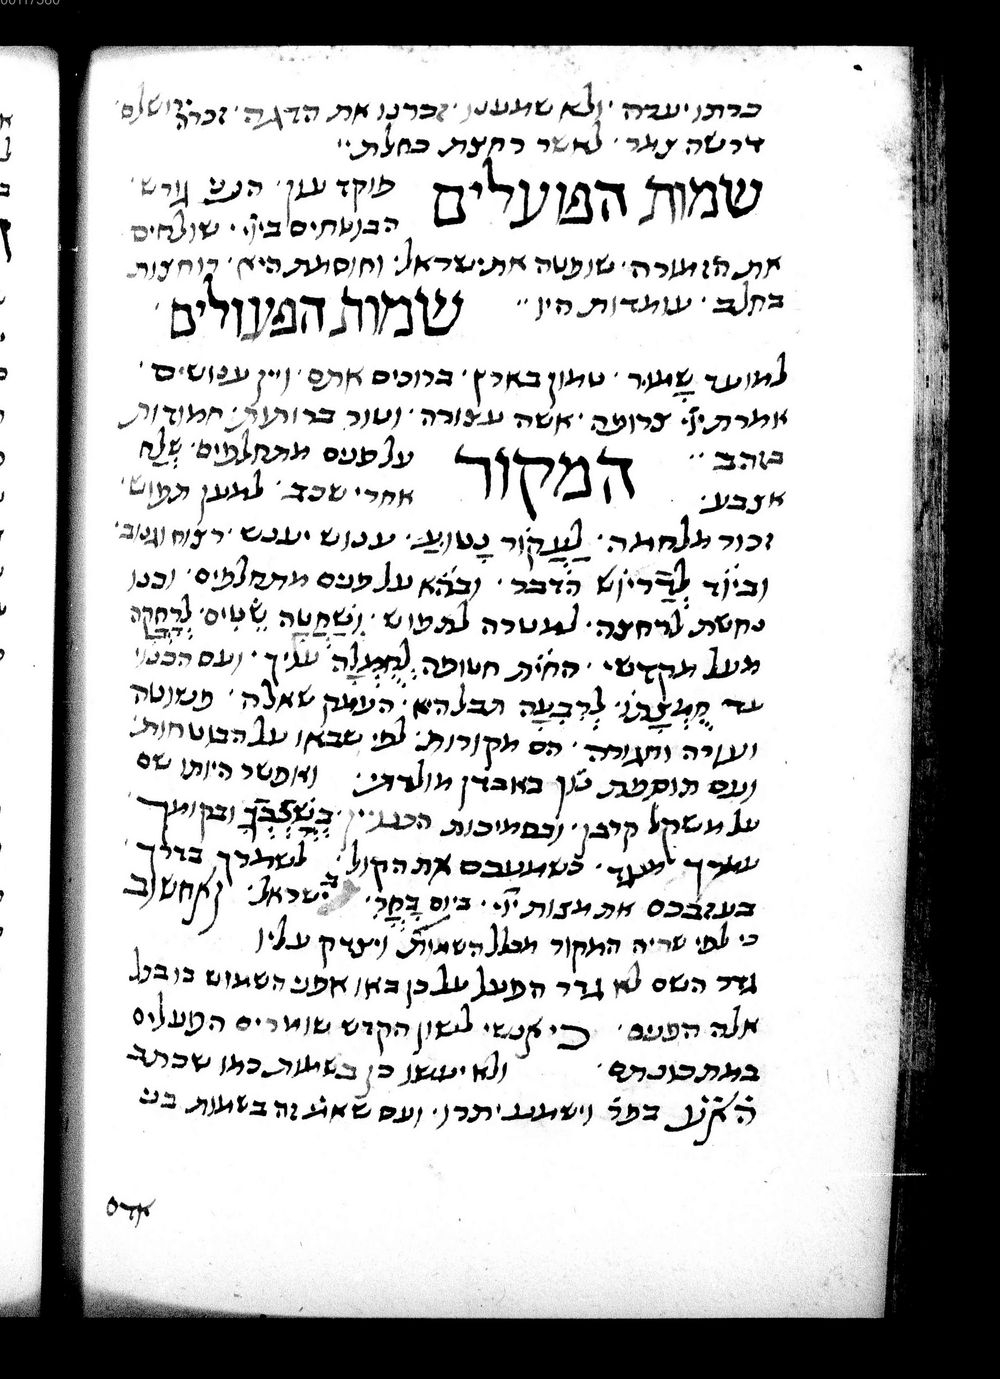 כרתו יערה · ולא שמענו · זכרנו את הדגה · זכרה ירושלם ·
דרשה צמר · לאשר רחצת כחלת ··
שמות הפועלים פוקד עון · הנני גורש ·
הבוטחים ביי׳ · שולחים
את הזמורה · שופטה את ישראל · וחוסמת היא · רוחצות
בחלב · עומדות היו ··
שמות הפעולים ·
למועד שָמוּר · טמון בארץ · ברוכים אתם · ויין ענושים ·
אמרת יי׳ צרופה · אשה עצורה · וטור ברותות · חמודות
על פנים מתהלמים · שְלַח
בזהב ·· המקור
אחרי שכב · למען תפוש ·
אצבע ·
זכור מלחמה · לַעֲקוֹר נָטוּעַ · ענוש יענש · רצוח וגנוב ·
וביוד לִדְרִיוֹש הדבר · ובהא על פנים מתהלמים · וכנו
נחשת לרחצה · למטרה לתפוש · וְשַחֲטָה שֵטִים · לְרָחֳקָה
מעל מקדשי · החית חטופה לְחֻמְלָה עליך · ועם הכנוי
עד חֻמְצָתוֹ · לְרִבְעָה תבל היא · העמק שאלה · פשוטה
ועורה וחגורה · הם מקורות · לפי שבאו על הבוטחות
ועם תוספת נון באבדן מולדתי · ואפשר היותו שם
על משקל קרבן · ובסמיכות הכנויין · בְשָׁכְבְךָ ובקומך
עמדך מנגד · כשמעכם את הקול · לשמרך בדרך ·
בעזבכם את מצות יי׳ · ביום בָחֳרִי בישראל · ואחשוב
כי לפי שהיה המקור מכלל השמות ויצדק עליו
גדר השם לא גדר הפעל על כן באו אפני השמוש בו בכל
אלה הפנים · כי אנשי לשון הקדש שומרים הפעלים
במתכונתם · ולא יעשו כן בשמות כמו שכתב
האע בפר׳ וישמע יתרו · ועם שאע זה בשמות בני
אדם